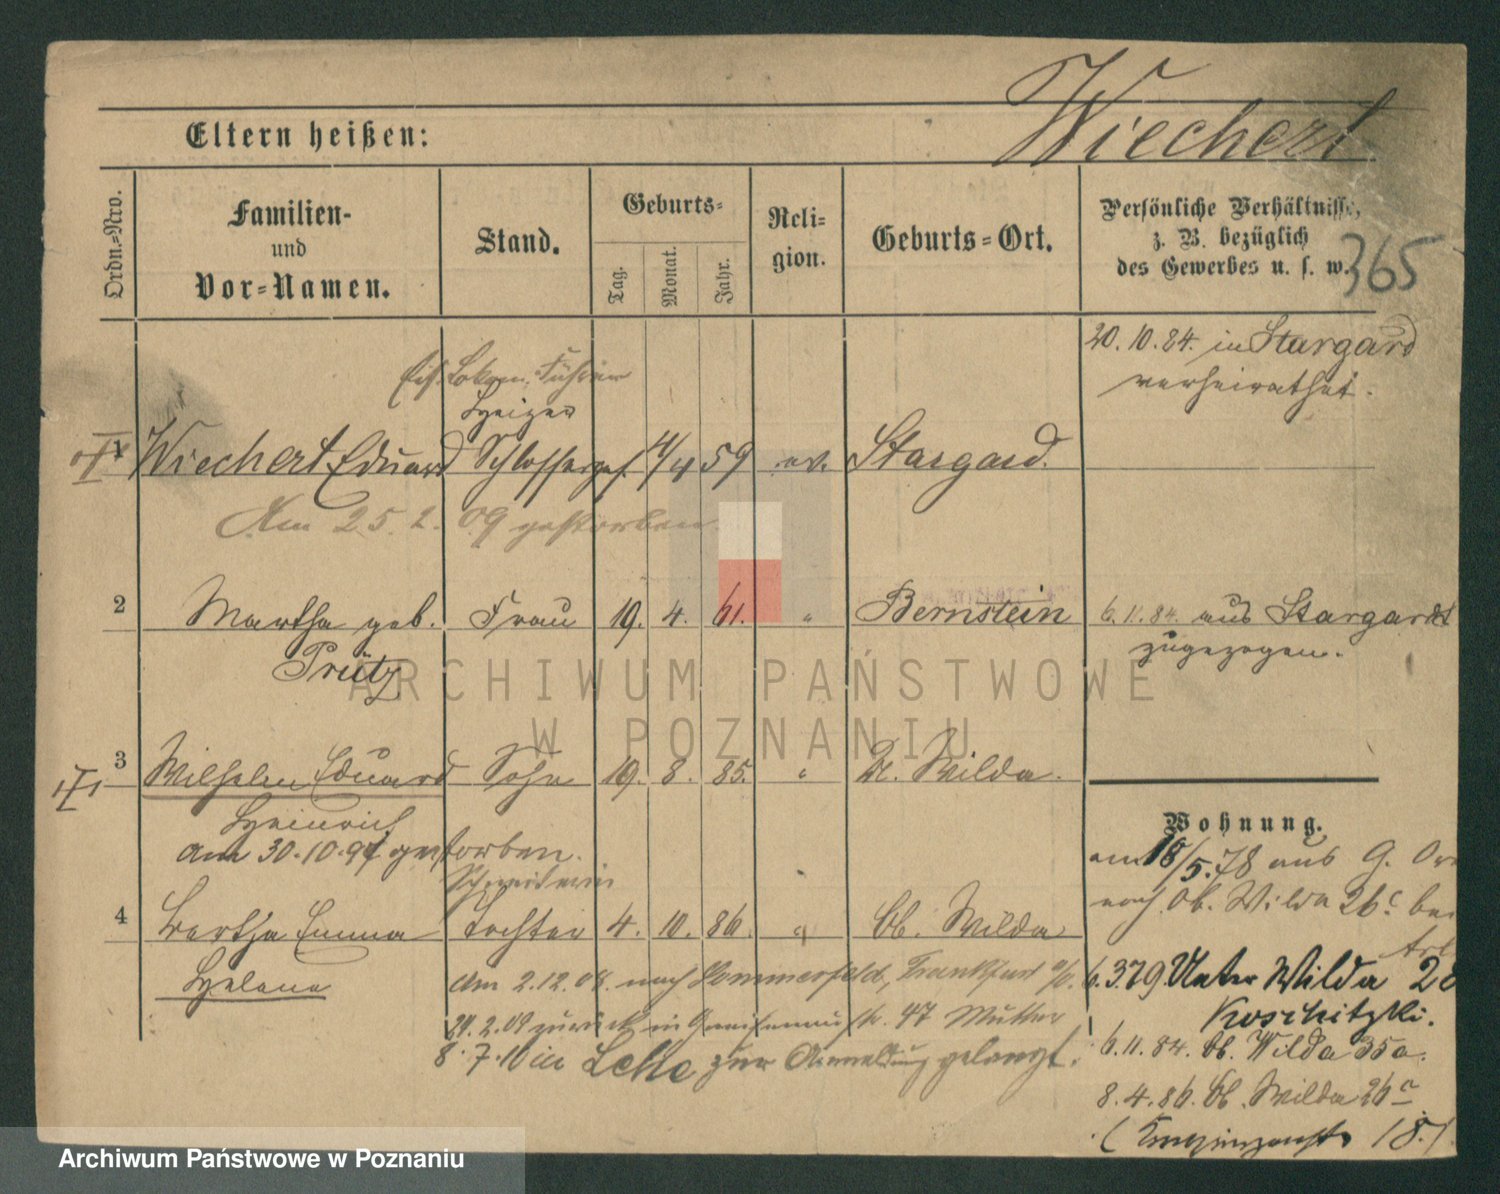 Wiechert
Eltern heißen:
Ordn.=Nro.
Familien-
und
Vor=Namen.
Stand.
Geburts=
Tag.
Monat.
Jahr.
Reli=
gion.
Geburts=Ort.
Persönliche Verhältnisse,
z. B. bezüglich
des Gewerbes u. s. w.
365
20. 10. 84. in Stargard
verheirathet.
Eis. Lokom. Führer
Heizer
Wiechert Eduard Schlosserges. 4/4 59 ev. Stargard.
Am 25. 2. 09 gestorben
2 Martha geb. Frau 19. 4. 61. " Bernstein 6. 11. 84. aus Stargardt
Prütz
zugezogen.
ARCHIWUM PAŃSTWOWE
W POZNANIU
3 Wilhelm Eduard Sohn 19. 8. 85. " Wilda.
Heinrich
am 30. 10. 97 gestorben.
Schneiderin
4 Bertha Emma Tochter 4. 10. 86. " Ob. Wilda
Helene
am 2. 12. 08. nach Sommerfeld, Frankfurt a/O.
29. 2. 09 zurück in str. 47 Mutter
8. 7. 10 in Lehe zur Anmeldung gelangt.
Wohnung.
am 18/5. 78 aus G.
nach Ob. Wilda 26c bei
6. 3. 79. Unter Wilda
Koschitzki.
6. 11. 84. Ob. Wilda 35a.
8. 4. 86. Ob. Wilda 26a
Archiwum Państwowe w Poznaniu